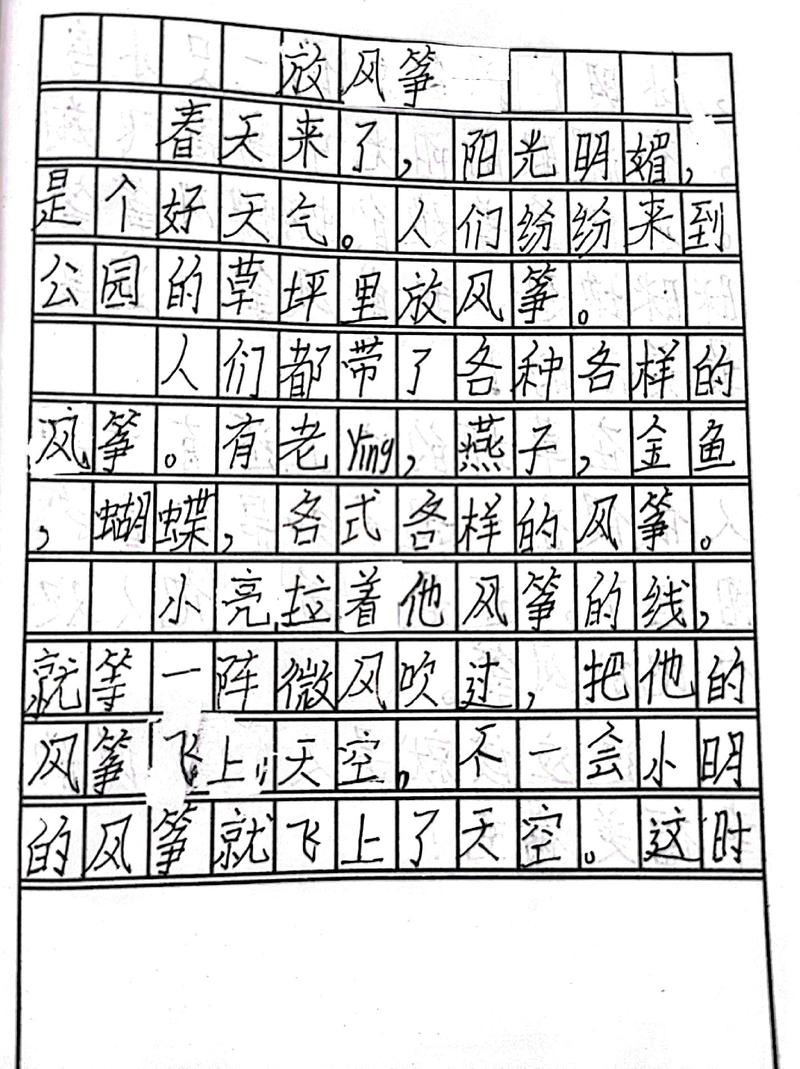 放风筝
春天来了，阳光明媚，
是个好天气。人们纷纷来到
公园的草坪里放风筝。
人们都带了各种各样的
风筝。有老ying，燕子，金鱼
，蝴蝶，各式各样的风筝。
小亮拉着他风筝的线，
就等一阵微风吹过，把他的
风筝飞上天空。不一会小明
的风筝就飞上了天空。这时